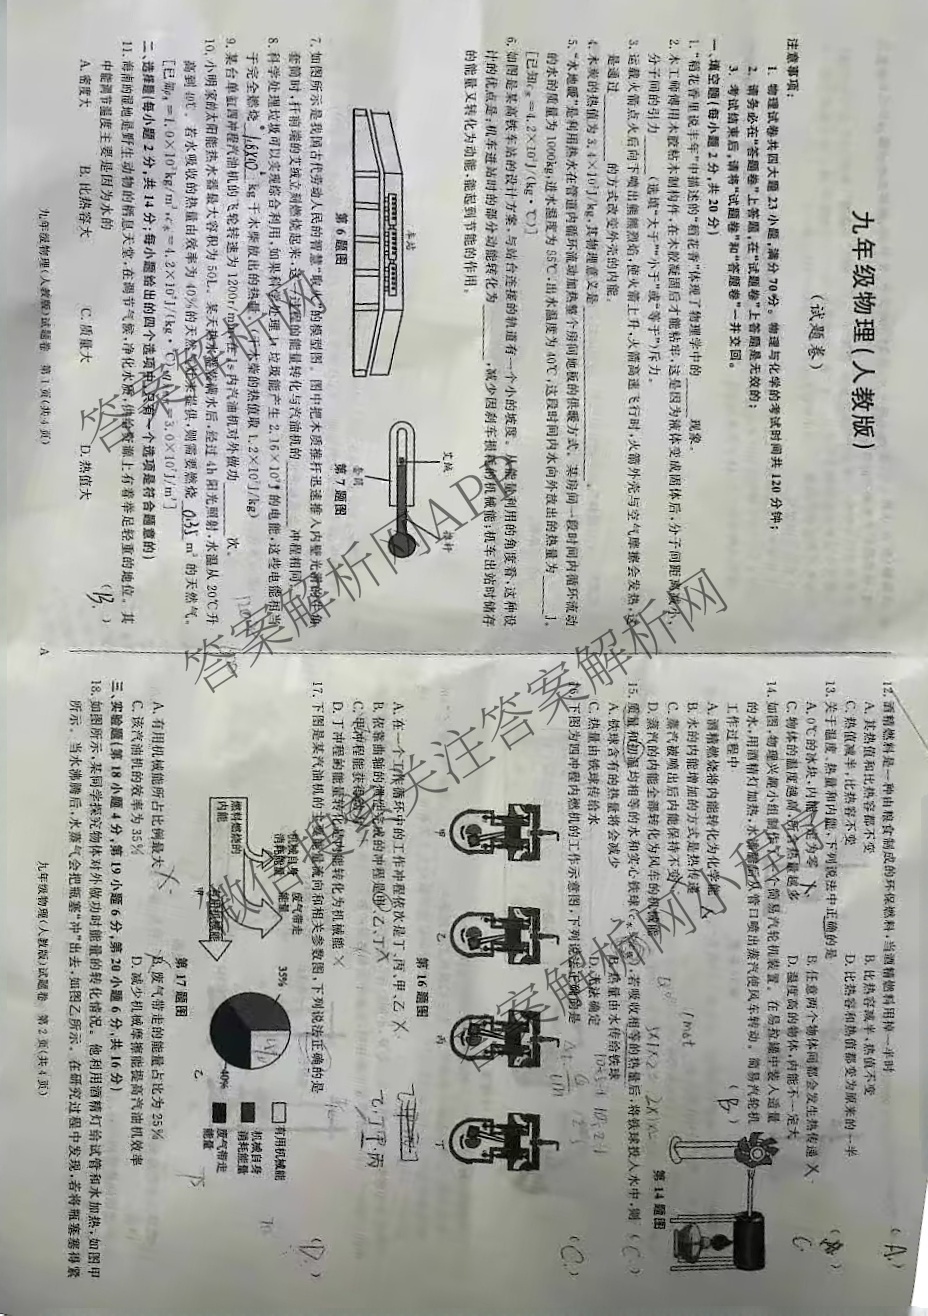 九年级物理(人教版)
(试题卷)
注意事项:
1. 物理试卷共四大题 23 小题,满分 70 分。物理与化学的考试时间共 120 分钟;
2. 请务必在“答题卷”上答题,在“试题卷”上答题是无效的;
3. 考试结束后,请将“试题卷”和“答题卷”一并交回。
一、填空题(每小题 2 分,共 20 分)
1. “稻花香里说丰年”中描述的“稻花香”体现了物理学中的 现象。
2. 木工师傅用木胶粘木制构件,在木胶凝固后才能粘牢,这是因为液体变成固体后,分子间距离减小,
分子间的引力 (选填“大于”“小于”或“等于”)斥力。
3. 运载火箭点火后向下喷出熊熊烈焰,使火箭上升,火箭高速飞行时,火箭外壳与空气摩擦会发热,这
是通过 的方式改变外壳的内能。
4. 木炭的热值为 3.4×10⁷J/kg,其物理意义是 。
5. “水地暖”是利用热水在管道内循环流动加热整个房间地板的供暖方式。某房间一段时间内循环流动
的水的质量为 1000kg,进水温度为 55℃,出水温度为 40℃,这段时间内水向外放出的热量为 J。
[已知c水=4.2×10³J/(kg·℃)]
6. 如图是某高铁车站的设计方案,与站台连接的轨道有一个小的坡度。从能量利用的角度看,这种设
计的优点是:机车进站时的部分动能转化为 ,减少因刹车损耗的机械能;机车出站时储存
的能量又转化为动能,能起到节能的作用。
车站
第 6 题图
艾绒
推杆
套筒
第 7 题图
7. 如图所示是我国古代劳动人民的智慧“取火”的模型图。图中把木质推杆迅速推入内壁光滑的牛角
套筒时,杆前端的艾绒立刻燃烧起来,这个过程的能量转化与汽油机的 冲程相同。
8. 科学处理垃圾可以实现综合利用,如果科学处理 1t 垃圾能产生 的电能,这些电能相当
于完全燃烧 kg 干木柴放出的热量。(干木柴的热值取 1.2×10⁷J/kg)
9. 某台单缸四冲程汽油机的飞轮转速为 1200r/min,在 1s 内汽油机对外做功 次。
10. 小明家的太阳能热水器最大容积为 50L。某天热水器装满水后,经过 4h 阳光照射,水温从 20℃升
高到 40℃。若水吸收的热量由效率为 40%的天然气灶来提供,则需要燃烧 m³ 的天然气。
二、选择题(每小题 2 分,共 14 分;每小题给出的四个选项中,只有一个选项是符合题意的)
11. 海南的湿地是野生动物的栖息天堂,在调节气候、净化水质、供给资源上有着举足轻重的地位。其
中能调节温度主要是因为水的 (B. )
A. 密度大 B. 比热容大 C. 质量大 D. 热值大
九年级物理(人教版)试题卷 第 1 页(共 4 页)
A
12. 酒精燃料是一种由粮食制成的环保燃料,当酒精燃料用掉一半时 (A. )
A. 其热值和比热容都不变 B. 比热容减半,热值不变
C. 热值减半,比热容不变 D. 比热容和热值都变为原来的一半
13. 关于温度、热量和内能,下列说法中正确的是
A. 0℃的冰块,内能一定为零 B. 任意两个物体间都会发生热传递
C. 物体的温度越高,所含热量越多 D. 温度高的物体,内能不一定大
14. 如图,物理兴趣小组制作了一个简易汽轮机装置。在易拉罐中装入适量
的水,用酒精灯加热,水沸腾后从管口喷出蒸汽使风车转动。简易汽轮机
工作过程中 (B )
A. 酒精燃烧将内能转化为化学能
B. 水的内能增加的方式是热传递
C. 蒸汽被喷出后内能保持不变
D. 蒸汽的内能全部转化为风车的机械能
第 14 题图
15. 质量和初温均相等的水和实心铁球,若吸收相等的热量后,将铁球投入水中,则 (C )
A. 铁球含有的热量将会减少 B. 热量由水传给铁球
C. 热量由铁球传给水 D. 无法确定
16. 下图为四冲程内燃机的工作示意图,下列说法正确的是 (C. )
甲 乙 丙 丁
第 16 题图
A. 在一个工作循环中的工作冲程依次是丁、丙、甲、乙
B. 依靠曲轴的惯性完成的冲程是甲、乙、丁
C. 甲冲程能获得动力
D. 丁冲程的能量转化是内能转化为机械能
17. 下图是某汽油机的主要能量流向和相关参数图,下列说法正确的是 (D. )
燃料燃烧的
内能
机械自身
消耗能量
废气带走
能量
有用机械能
甲
35%
40%
乙
有用机械能
机械自身
消耗能量
废气带走
能量
第 17 题图
A. 有用机械能所占比例最大 B. 废气带走的能量占比为 25%
C. 该汽油机的效率为 35% D. 减少机械摩擦能提高汽油机效率
三、实验题(第 18 小题 4 分,第 19 小题 6 分,第 20 小题 6 分,共 16 分)
18. 如图所示,某同学探究物体对外做功时能量的转化情况。他利用酒精灯给试管和水加热,如图甲
所示。当水沸腾后,水蒸气会把瓶塞“冲”出去,如图乙所示。在研究过程中发现,若将瓶塞塞得紧
九年级物理(人教版)试题卷 第 2 页(共 4 页)